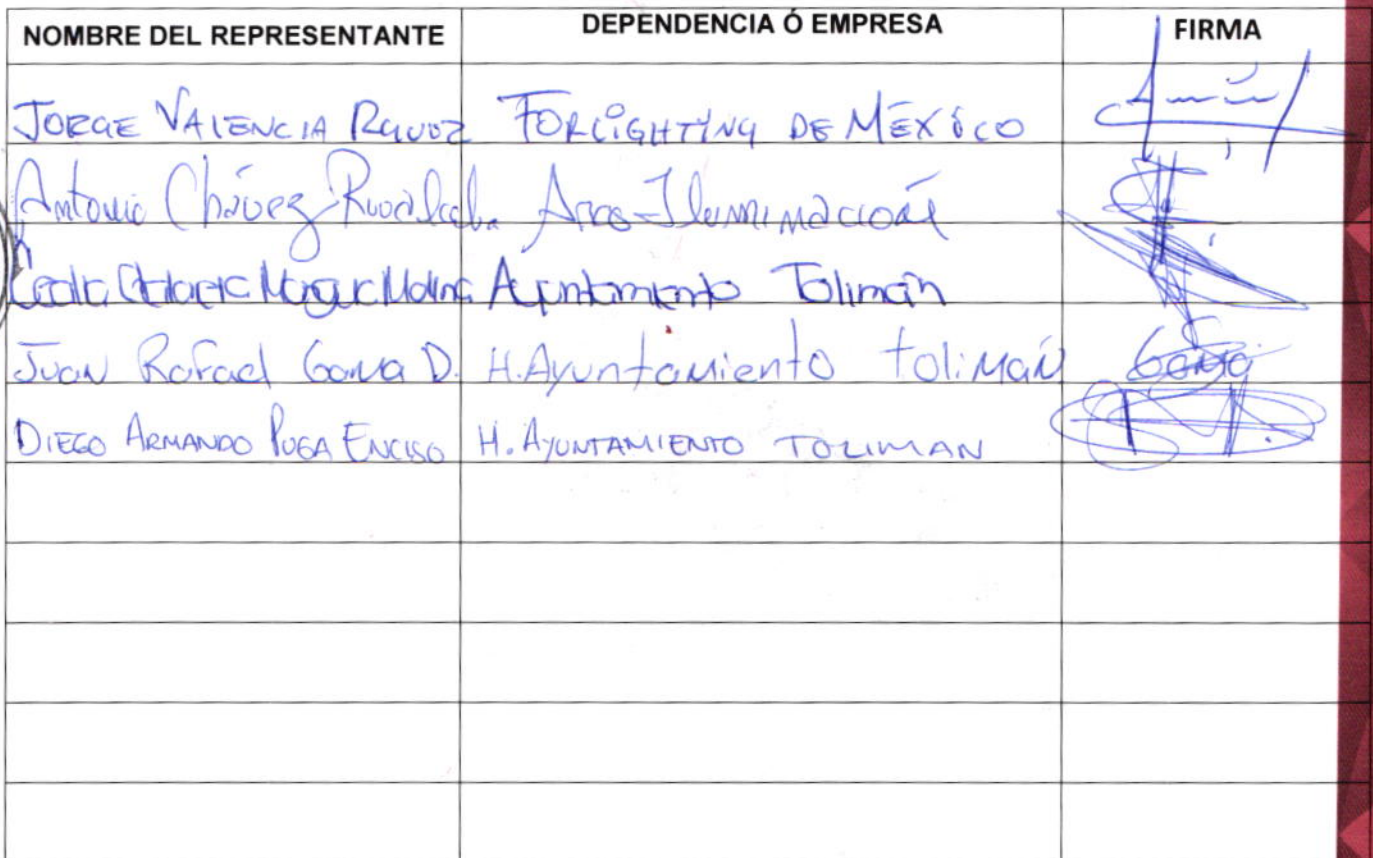 NOMBRE DEL REPRESENTANTE DEPENDENCIA Ó EMPRESA FIRMA
JORGE VALENCIA FORLIGHTING DE MÉXICO
Antonio Chávez Ruvalcaba Iluminación
Ayuntamiento Tolimán
Juan Rafael D. H. Ayuntamiento tolimán
DIEGO ARMANDO PUGA ENCISO H. AYUNTAMIENTO TOLIMAN